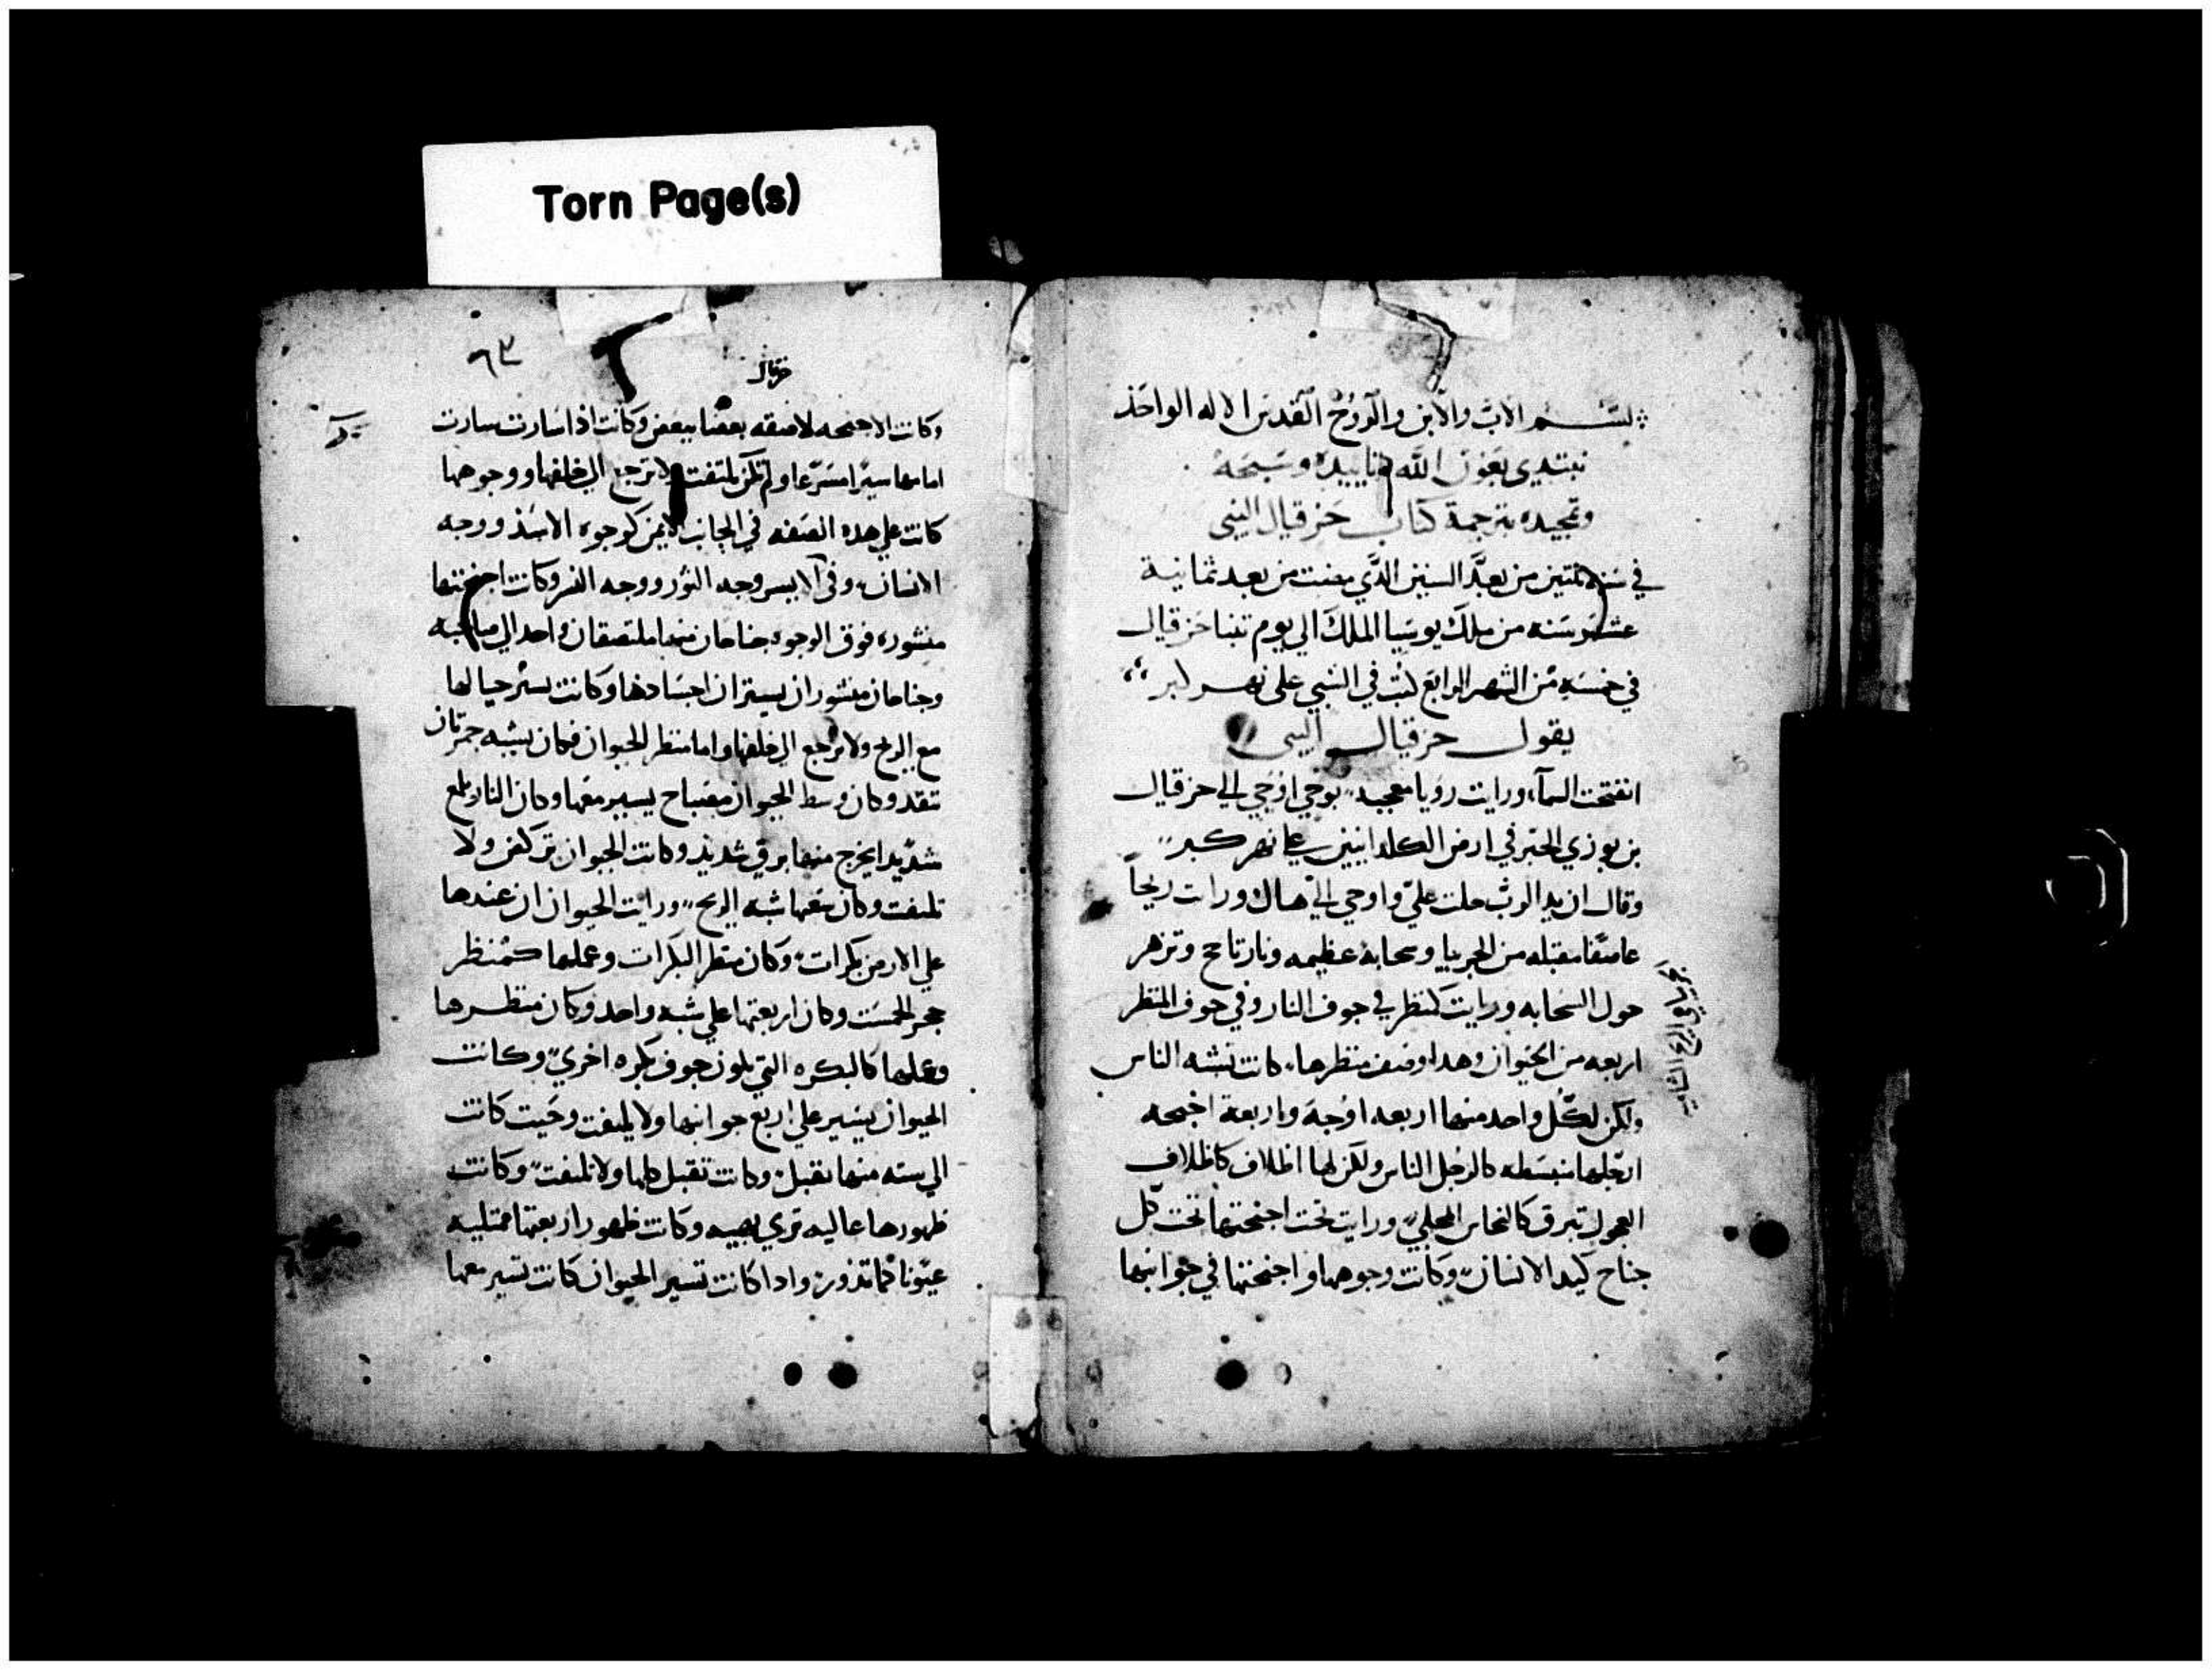 Torn Page(s)
بسم الاب والابن والروح القدس الاله الواحد
نبتدي بعون الله وتاييده
وتمجيده بترجمة كتاب حزقيال النبي
في سنة ثلتين من بعد السنين الدي مضت من بعد ثمانية
عشر سنه من ملك يوسيا الملك الي يوم تنبا حزقيال
في خمسه من الشهر الرابع كنت في السبي علي نهر كبر
يقول حزقيال النبي
انفتحت السماء ورايت رويا معجبه بوحي اوحي الي حزقيال
بن بوزي الحبر في ارض الكلدانيين علي نهر كبر
وقال ان يد الرب حلت علي واوحي الي هناك ورات ريحاً
عاصفا مقبله من الجربيا وسحابة عظيمه ونار تاجج وتزهر
حول السحابه ورايت كمنظر في جوف النار وفي جوف المنظر
اربعه من الحيوان وهدا وصف منظرها كانت تشبه الناس
ولكن لكل واحد منها اربعه اوجه واربعة اجنحه
ارجلها منبسطه كالرجل الناس ولكن لها اظلاف كاظلاف
العجول تبرق كالنحاس المجلي ورايت تحت اجنحتها تحت كل
جناح كيد الانسان وكانت وجوهها واجنحتها في جوانبها
حزقيال
٦٣
وكانت الاجنحه لاصقه بعضا ببعض وكانت اذا سارت سارت
امامها سيرا مسرعا ولم تكن تلتفت ولا ترجع الي خلفها ووجوهها
كانت علي هده الصفه في الجانب الايمن كوجوه الاسد ووجه
الانسان وفي الايسر وجه الثور ووجه النسر وكانت اجنحتها
منشوره فوق الوجوه جناحان منها ملتصقان واحد الي صاحبه
وجناحان منشوران يستران اجسادها وكانت تسير حيالها
مع الريح ولا ترجع الي خلفها واما منظر الحيوان فكان يشبه جمر نار
تتقد وكان وسط الحيوان مصباح يسير معها وكان النار يلمع
شديدا يخرج منها برق شديد وكانت الحيوان تركض ولا
تلتفت وكان معها شبه الريح ورايت الحيوان ان عندها
علي الارض بكرات وكان منظر البكرات وعملها كمنظر
حجر الحست وكان اربعتها علي شبه واحد وكان منظرها
وعملها كالبكره التي تلون جوف بكره اخري وكانت
الحيوان يسير علي اربع جوانبها ولا يلتفت وحيت كانت
الي سته منها تقبل وكانت تقبل كلها ولا تلتفت وكانت
ظهورها عاليه تري بهيه وكانت ظهور اربعتها ممتليه
عيونا كما تدور وادا كانت تسير الحيوان كانت تسير معها